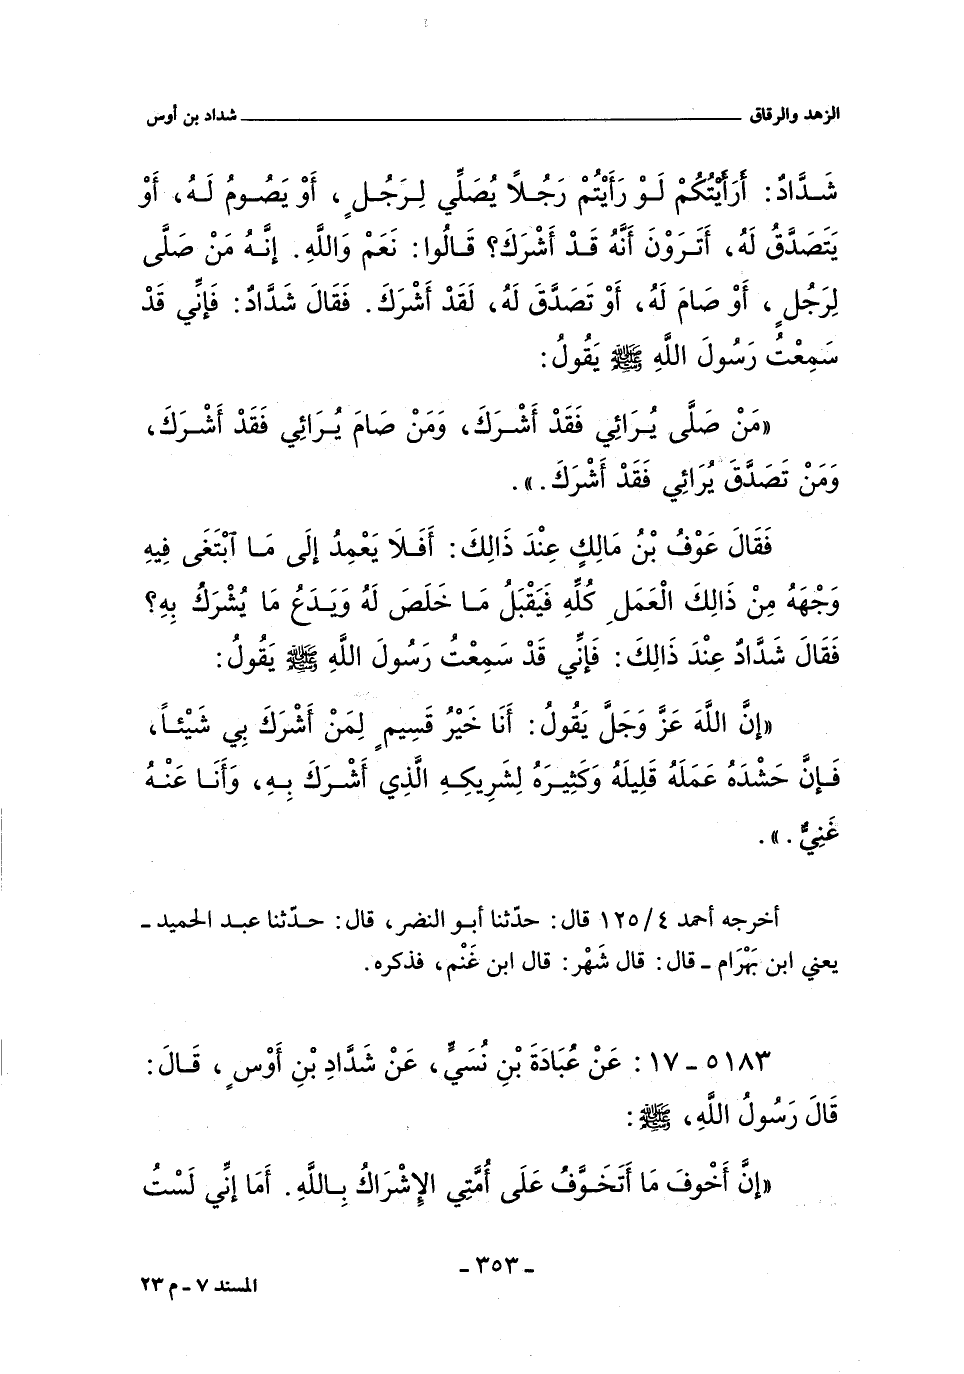 الزهد والرقاق ــــــــــــــــــــــــــــــــ شداد بن أوس
شَـدَّادٌ: أَرَأَيْتُكُمْ لَـوْ رَأَيْتُم رَجُـلًا يُصَلِّي لِـرَجُـلٍ، أَوْ يَصُـومُ لَـهُ، أَوْ
يَتَصَدَّقُ لَهُ، أَتَـرَوْنَ أَنَّهُ قَـدْ أَشْرَكَ؟ قَـالُوا: نَعَمْ وَاللَّهِ. إِنَّـهُ مَنْ صَلَّى
لِرَجُلٍ، أَوْ صَامَ لَهُ، أَوْ تَصَدَّقَ لَهُ، لَقَدْ أَشْرَكَ. فَقَالَ شَدَّادٌ: فَإِنِّي قَدْ
سَمِعْتُ رَسُولَ اللَّهِ ﷺ يَقُولُ:
«مَنْ صَلَّى يُـرَائِي فَقَدْ أَشْـرَكَ، وَمَنْ صَامَ يُـرَائِي فَقَدْ أَشْـرَكَ،
وَمَنْ تَصَدَّقَ يُرَائِي فَقَدْ أَشْرَكَ.».
فَقَالَ عَوْفُ بْنُ مَالِكٍ عِنْدَ ذَالِكَ: أَفَـلَا يَعْمِدُ إِلَى مَـا ٱبْتَغَى فِيهِ
وَجْهَهُ مِنْ ذَالِكَ الْعَمَلِ كُلِّهِ فَيَقْبَلُ مَـا خَلَصَ لَهُ وَيَـدَعُ مَا يُشْرَكُ بِهِ؟
فَقَالَ شَدَّادٌ عِنْدَ ذَالِكَ: فَإِنِّي قَدْ سَمِعْتُ رَسُولَ اللَّهِ ﷺ يَقُولُ:
«إِنَّ اللَّهَ عَزَّ وَجَلَّ يَقُولُ: أَنَا خَيْرُ قَسِيمٍ لِمَنْ أَشْرَكَ بِي شَيْئـاً،
فَـإِنَّ حَشْدَهُ عَمَلَهُ قَلِيلَهُ وَكَثِيـرَهُ لِشَرِيكِـهِ الَّذِي أَشْـرَكَ بِـهِ، وَأَنَـا عَنْـهُ
غَنِيٌّ.».
أخرجه أحمد ٤/ ١٢٥ قال: حدّثنا أبـو النضر، قال: حـدّثنا عبـد الحميد ـ
يعني ابن بَهْرَام ـ قال: قال شَهْر: قال ابن غَنْم، فذكره.
٥١٨٣ ـ ١٧: عَنْ عُبَادَةَ بْنِ نُسَيٍّ، عَنْ شَدَّادِ بْنِ أَوْسٍ، قَـالَ:
قَالَ رَسُولُ اللَّهِ، ﷺ:
«إِنَّ أَخْوفَ مَا أَتَخَـوَّفُ عَلَى أُمَّتِي الإِشْرَاكُ بِـاللَّهِ. أَمَا إِنِّي لَسْتُ
ـ ٣٥٣ ـ
المسند ٧ ـ م ٢٣